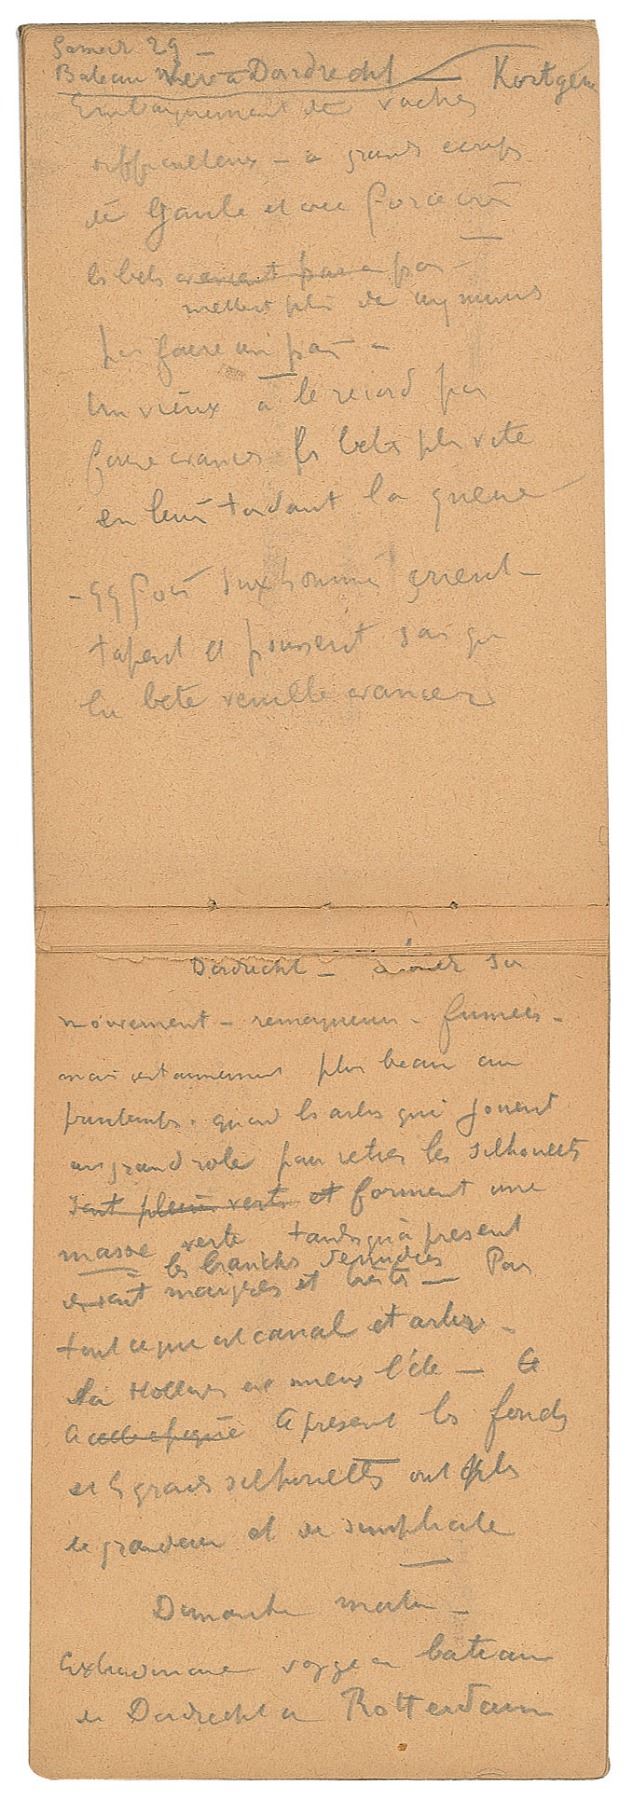 Samedi 29 —
Bateau Veere à Dordrecht — Kortgene
Embarquement de vaches
difficultueux — à grands coups
de gaule et avec force cris
les bêtes
mettent plus de
faire un pas —
Un vieux a le record pour
faire avancer les bêtes plus vite
en leur tordant la queue —
- qq fois dix hommes crient -
tapent et poussent sans que
la bête veuille avancer
Dordrecht —
mouvement — remorqueurs - fumées -
mais certainement plus beau au
printemps. quand les arbres qui jouent
un grand role pour les silhouettes
sont pleins verts et forment une
masse verte tandis qu'à présent
les branches dénudées
sont maigres et tristes — Pour
tout ce que est canal et arbres -
la Hollande est mieux l'été —
A present les fonds
et les grandes silhouettes ont plus
de grandeur et de simplicité
—
Dimanche matin —
Extraordinaire voyage en bateau
de Dordrecht à Rotterdam